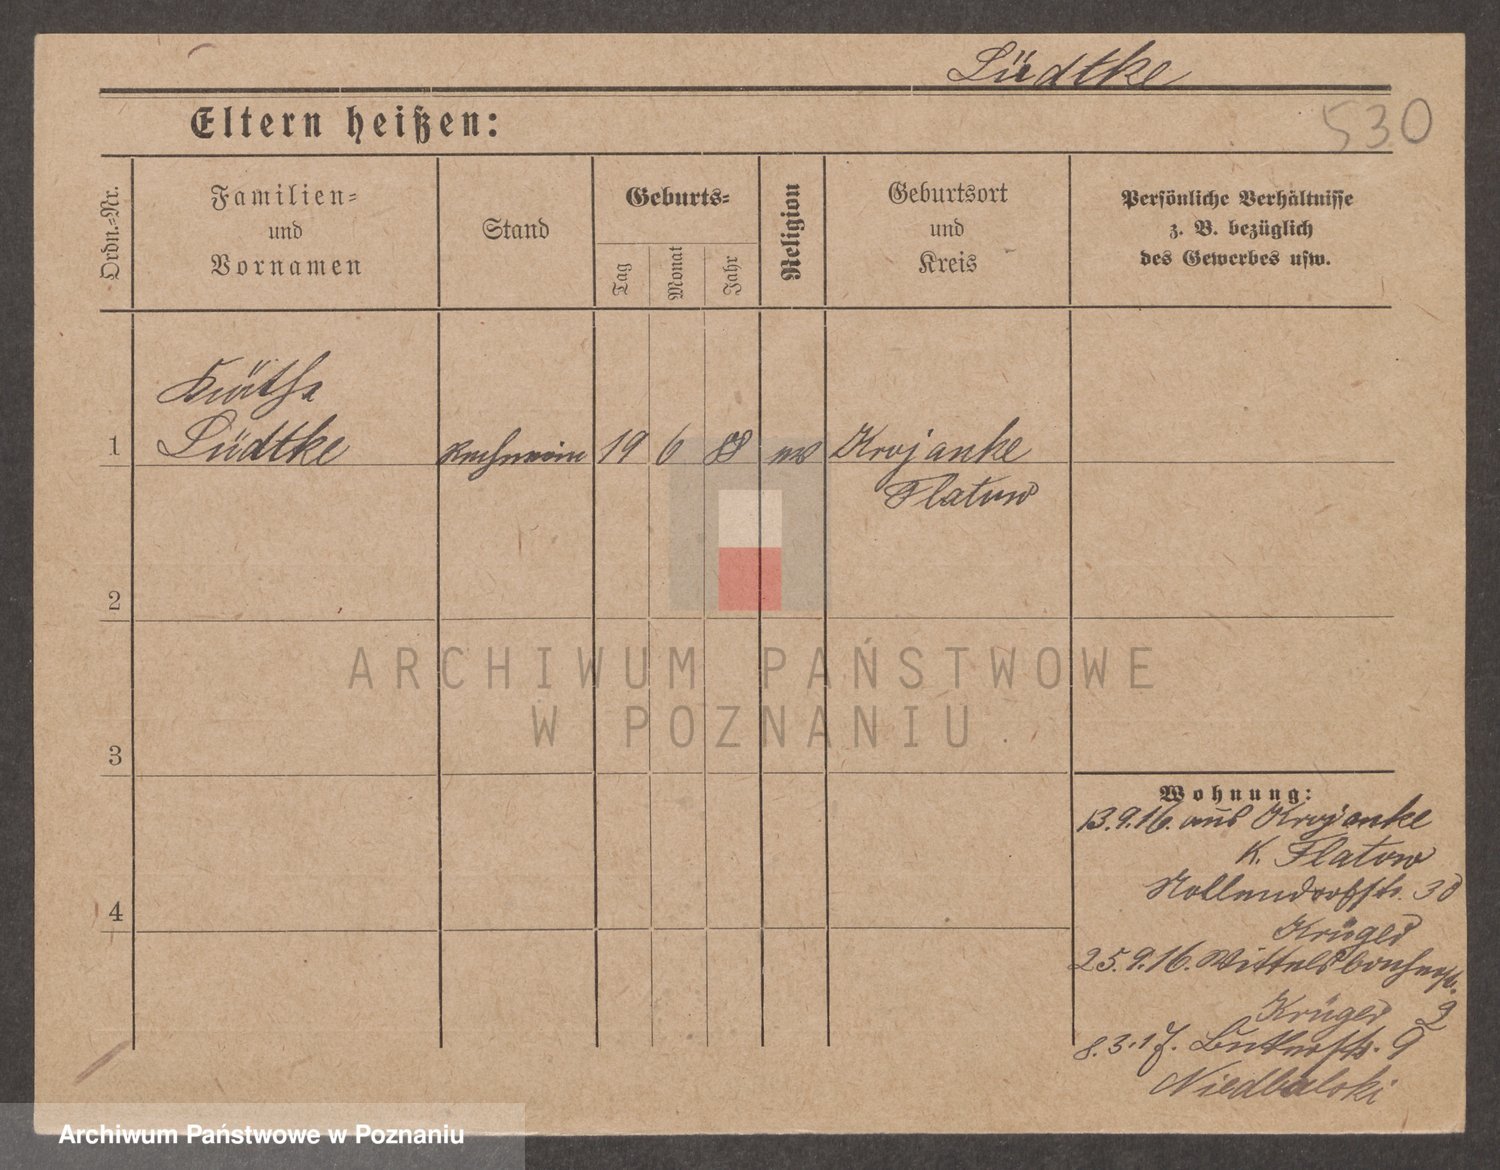 Lüdtke
530
Eltern heißen:
Ordn.-Nr.
Familien-
und
Vornamen
Stand
Geburts-
Tag
Monat
Jahr
Religion
Geburtsort
und
Kreis
Persönliche Verhältnisse
z. B. bezüglich
des Gewerbes usw.
Käthe
1 Lüdtke 19 6 88 ev Krojanke
Flatow
2
3
4
Wohnung:
13.9.16. aus Krojanke
K. Flatow
Nollendorfstr. 30
Krüger
25.9.16. Wittelsbacherstr.
Krüger 2
8.3.17. 9
Niedbalski
ARCHIWUM PAŃSTWOWE
W POZNANIU
Archiwum Państwowe w Poznaniu